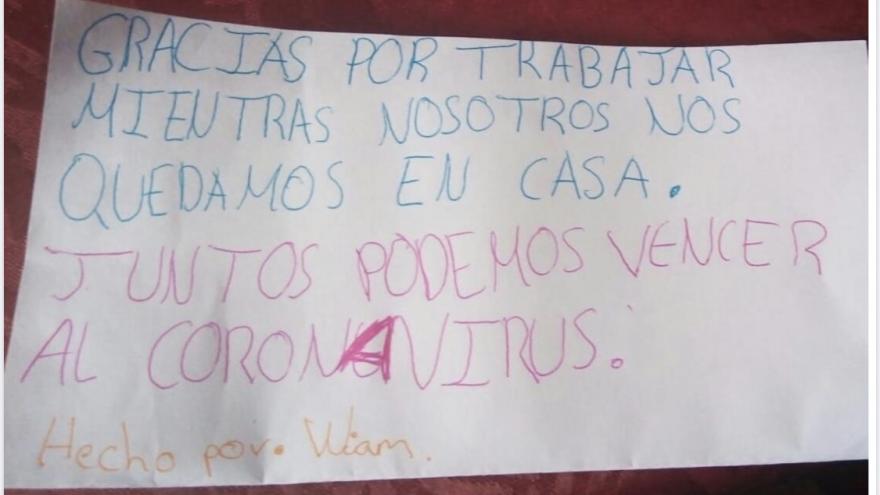 GRACIAS POR TRABAJAR
MIENTRAS NOSOTROS NOS
QUEDAMOS EN CASA.
JUNTOS PODEMOS VENCER
AL CORONAVIRUS.
Hecho por. Wiam.